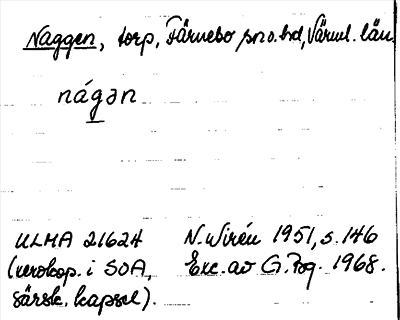 Naggen, torp, Färnebo sn o. hd, Värml. län.
nágən
ULMA 21624 N. Wirén 1951, s. 146
(xerokop. i SOA, Exc. av G. Rog. 1968.
särsk. kapsel).